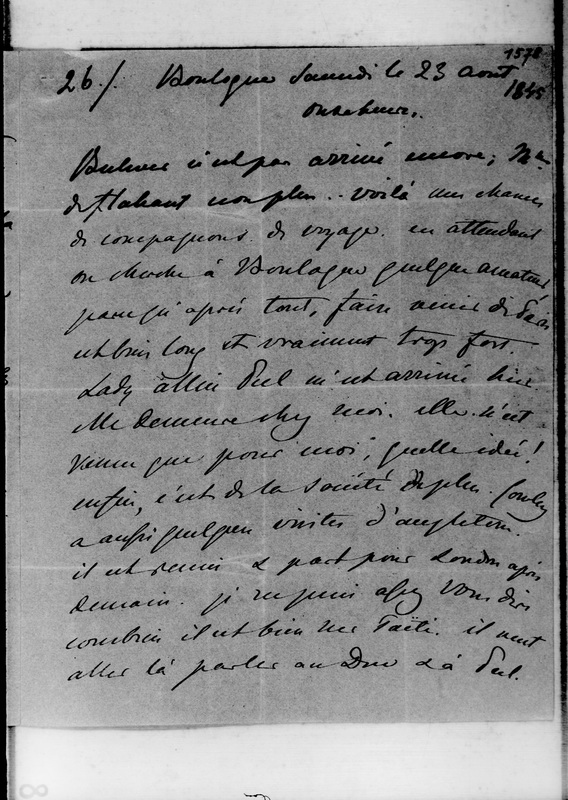 1578
26./. Boulogne Samedi le 23 août
1845
onze heures.
Bulwer n'est pas arrivé encore; Mme
de Flahaut non plus.. voilà mes chances
de compagnons de voyage. en attendant
on cherche à Boulogne quelque amateur
parce qu'après tout, faire venir de Paris
est bien long et vraiment trop fort.
Lady Allice Peel m'est arrivée hier
elle demeure chez moi. elle n'est
venue que pour moi, quelle idée!
enfin, c'est de la société de plus. Cowley
a aussi quelques visites d'angleterre.
il est remis & part pour Londres après
demain. je ne puis assez vous dire
combien il est bien sur Taïti. il veut
aller là parler au Duc & à Peel.